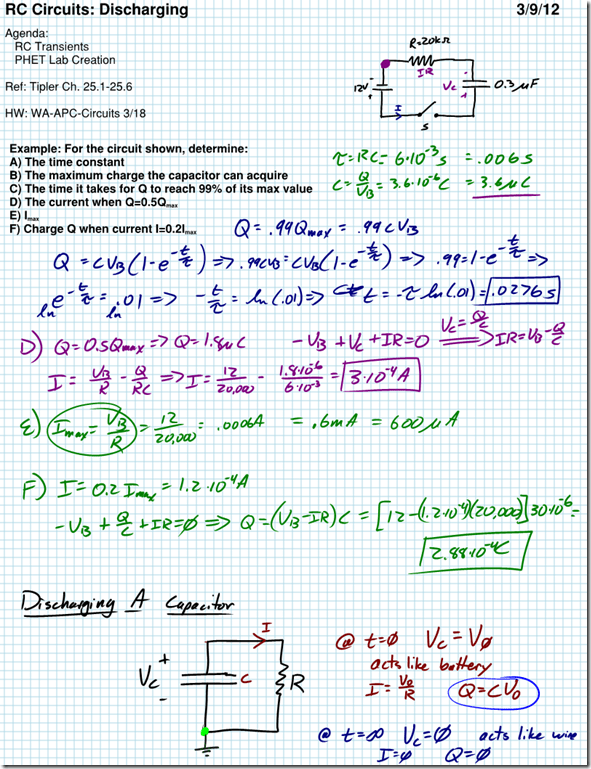 RC Circuits: Discharging 3/9/12
Agenda:
RC Transients
PHET Lab Creation
Ref: Tipler Ch. 25.1-25.6
HW: WA-APC-Circuits 3/18
R=20kΩ
IR
12V - +
Vc - +
0.3μF
I
S
Example: For the circuit shown, determine:
A) The time constant
B) The maximum charge the capacitor can acquire
C) The time it takes for Q to reach 99% of its max value
D) The current when Q=0.5Qmax
E) Imax
F) Charge Q when current I=0.2Imax
τ=RC= 6·10⁻³s = .006s
C = Q/VB = 3.6·10⁻⁶C = 3.6μC
Q = .99Qmax = .99CVB
Q = CVB(1-e^-t/τ) => .99CVB = CVB(1-e^-t/τ) => .99=1-e^-t/τ =>
ln e^-t/τ = ln .01 => -t/τ = ln(.01) => t = -τ ln(.01) = .0276s
D) Q=0.5Qmax => Q=1.8μC -VB+Vc+IR=0 Vc=Q/C => IR=VB-Q/C
I = VB/R - Q/RC => I = 12/20,000 - 1.8·10⁻⁶/6·10⁻³ = 3·10⁻⁴A
E) Imax = VB/R = 12/20,000 = .0006A = .6mA = 600μA
F) I = 0.2Imax = 1.2·10⁻⁴A
-VB + Q/C + IR = 0 => Q=(VB-IR)C = [12-(1.2·10⁻⁴)(20,000)]30·10⁻⁶ =
2.88·10⁻⁴C
Discharging A Capacitor
I
Vc + -
C
R
@ t=0 Vc = V0
acts like battery
I = V0/R Q=CV0
@ t=∞ Vc=0 acts like wire
I=0 Q=0